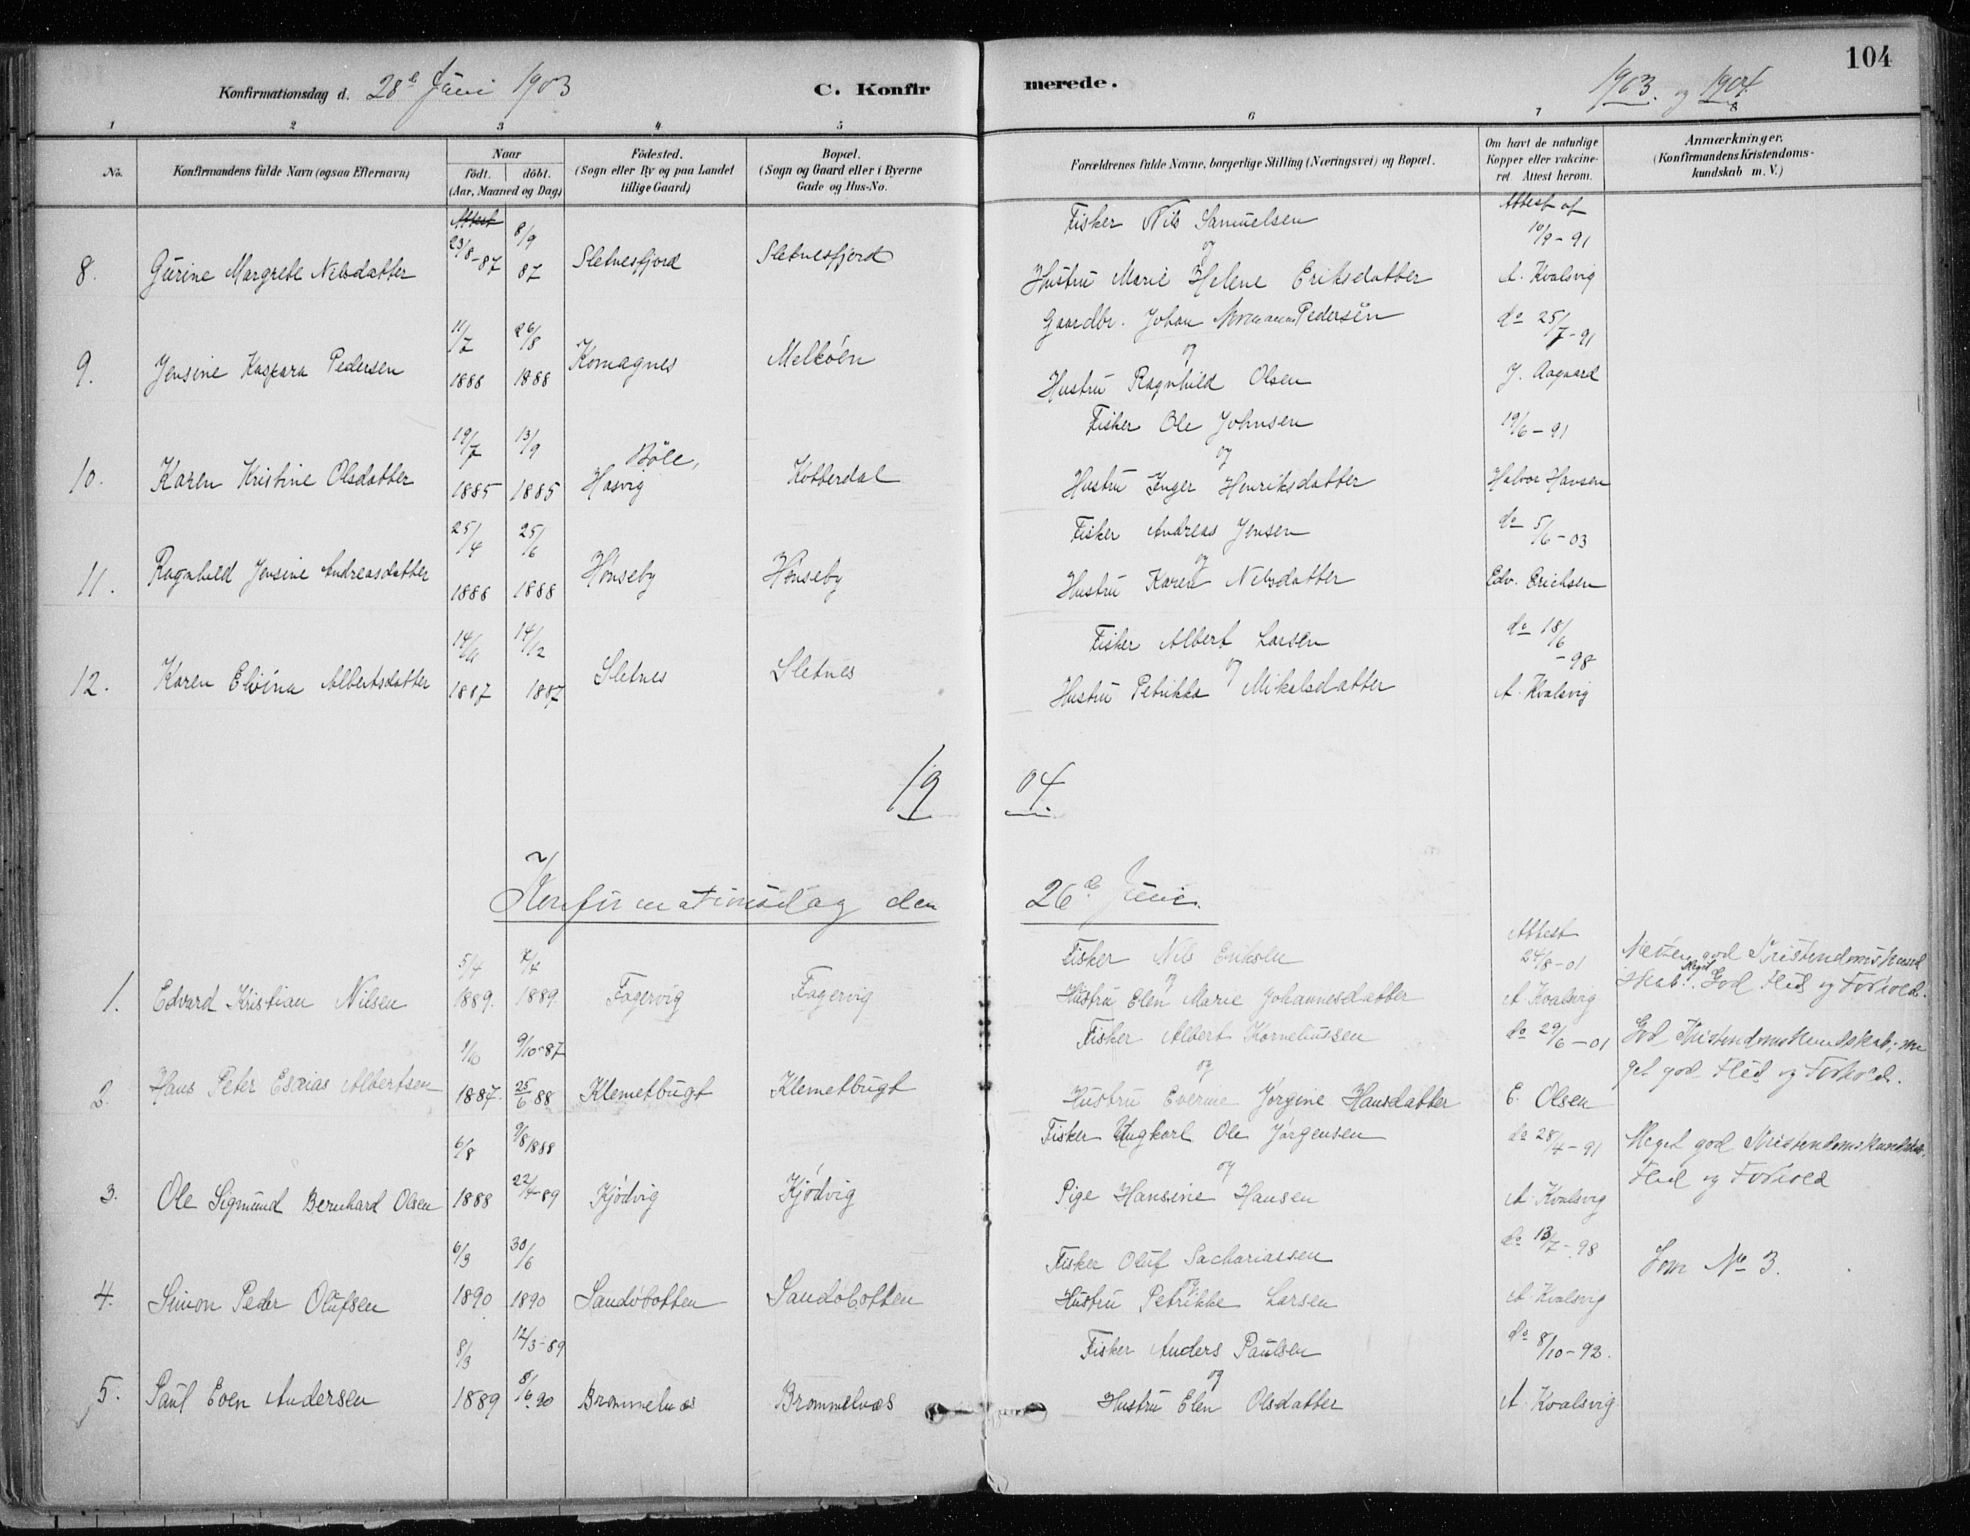 104
Konfirmationsdag d. 28de Juni 1903
C. Konfirmerede.
1903 og 1904
1 2 3 4 5 6 7
No. Konfirmandens fulde Navn (ogsaa Efternavn) Naar født. døbt. (Aar, Maaned og Dag) Fødested. (Sogn eller By og paa Landet tillige Gaard) Bopæl. (Sogn og Gaard eller i Byerne Gade og Hus-No. Forældrenes fulde Navne, borgerlige Stilling (Næringsvei) og Bopæl. Om havt de naturlige Kopper eller vakcineret. Attest herom. Anmærkninger. (Konfirmandens Kristendomskundskab m. V.)
Attest 8/9 Fisker Nils Samuelsen Attest af
23/8-87 87 og 10/9-91
8. Gurine Margrete Nilsdatter Sletnesfjord Sletnesfjord Hustru Marie Helene Eriksdatter A. Kvalsvig
11/7 26/8 Gaardbr. Johan Pedersen do 25/7-91
og
9. Jensine Kaspara Pedersen 1888 1888 Komagnes Melkøen Hustru Ragnhild Olsen J. Aagaard
19/7 13/9 Bøle, Fisker Ole Johnsen 19/6-91
og
10. Karen Kristine Olsdatter 1885 1885 Hasvig Kotterdal Hustru Inger Henriksdatter Halvor Hansen
25/4 25/6 Fisker Andreas Jensen do 5/6-03
og
11. Ragnhild Jensine Andreasdatter 1888 1888 Hønseby Hønseby Hustru Karen Nilsdatter Edv. Erichsen
14/12 Fisker Albert Larsen do 18/6-98
og
12. Karen Elvina Albertsdatter 1887 1887 Sletnes Sletnes Hustru Petrikka Mikalsdatter A. Kvalsvig
1904
Konfirmationsdag den 26de Juni.
5/4 Fisker Nils Eriksen Attest 24/8-01 Næsten god Kristendomskund
og
1. Edvard Kristian Nilsen 1889. 1889. Fagervig Fagervig Hustru Elen Marie Johannesdatter A. Kvalsvig skab. Meget God Flid og Forhold.
9/10-87 Fisker Albert Korneliussen do 29/6-01 God Kristendomskundskab; me
og
2. Hans Peter Esaias Albertsen 1887. 25/6 88 Klemetbugt Klemetbugt Hustru Everine Jørgine Hansdatter E. Olsen get god Flid og Forhold.
6/8 9/8 1888 Fisker Ungkarl Ole Jørgensen do 28/4-91 Meget god Kristendomskundskab.
og
3. Ole Sigmund Bernhard Olsen 1888 Kjødvig Kjødvig Pige Hansine Hansen A. Kvalsvig Flid og Forhold
6/3 30/6 Fisker Oluf Sachariassen do 13/7-98 Som No 3.
og
4. Simon Peder Olufsen 1890 1890 Sandøbotten Sandøbotten Hustru Petrikke Larsen A. Kvalsvig
8/3 12/3-89 Fisker Anders Paulsen do 8/10-92.
og
5. Paul Even Andersen 1889 8/6 90 Brommelnæs Brommelnæs Hustru Elen Olsdatter A. Kvalsvig